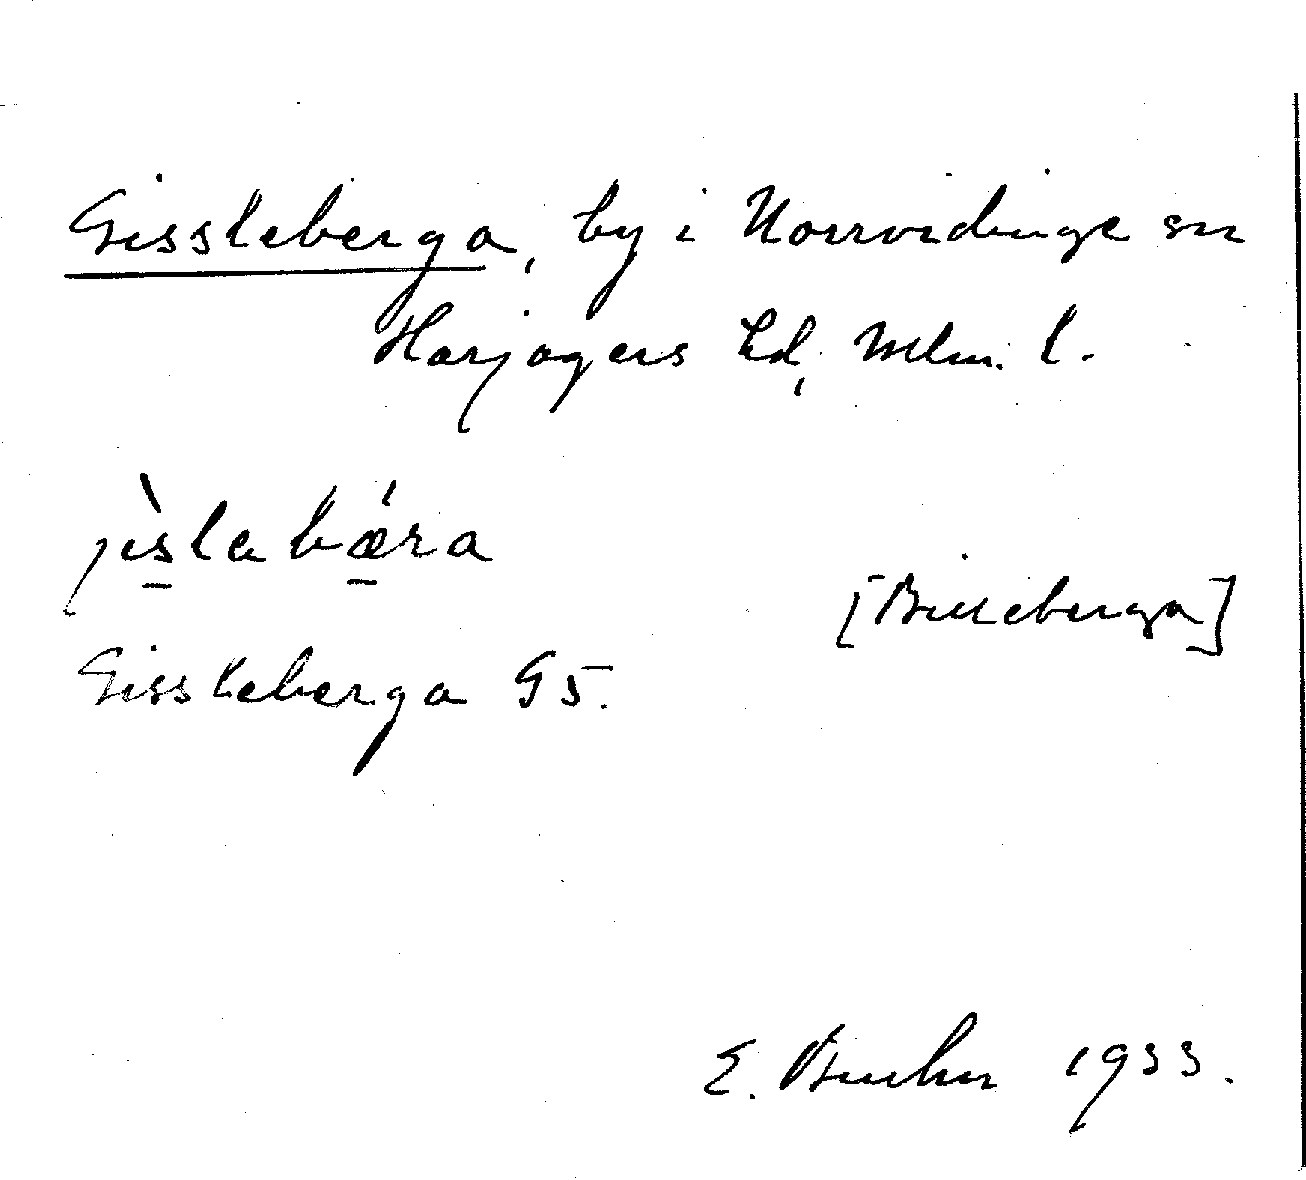 Gissleberga, by i Norrvidinge sn
Harjagers hd, Mlm. l.
jìsla bǽra
[Billeberga]
Gissleberga G5.
E. 1933.